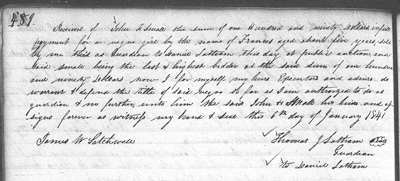 481
Received of John H Small the sum of one Hundred and ninety dollars in full
payment for a negro girl by the name of Frances aged about five years, sold
by me this as Guardian to Daniel Latham this day at public auction, and
said Small being the last & highest bidder at the said sum of one hundred
and ninety dollars now I for myself my heirs Executors and admrs. do
warrant & defend the title of said negro so far as I am authorized to do as
guardian & no further unto him the said John H Small his heirs and as
signs forever as witness my hand & seal this 6th day of January 1841
James W Satchwell
Thomas J Latham seal
Guardian
to Daniel Latham